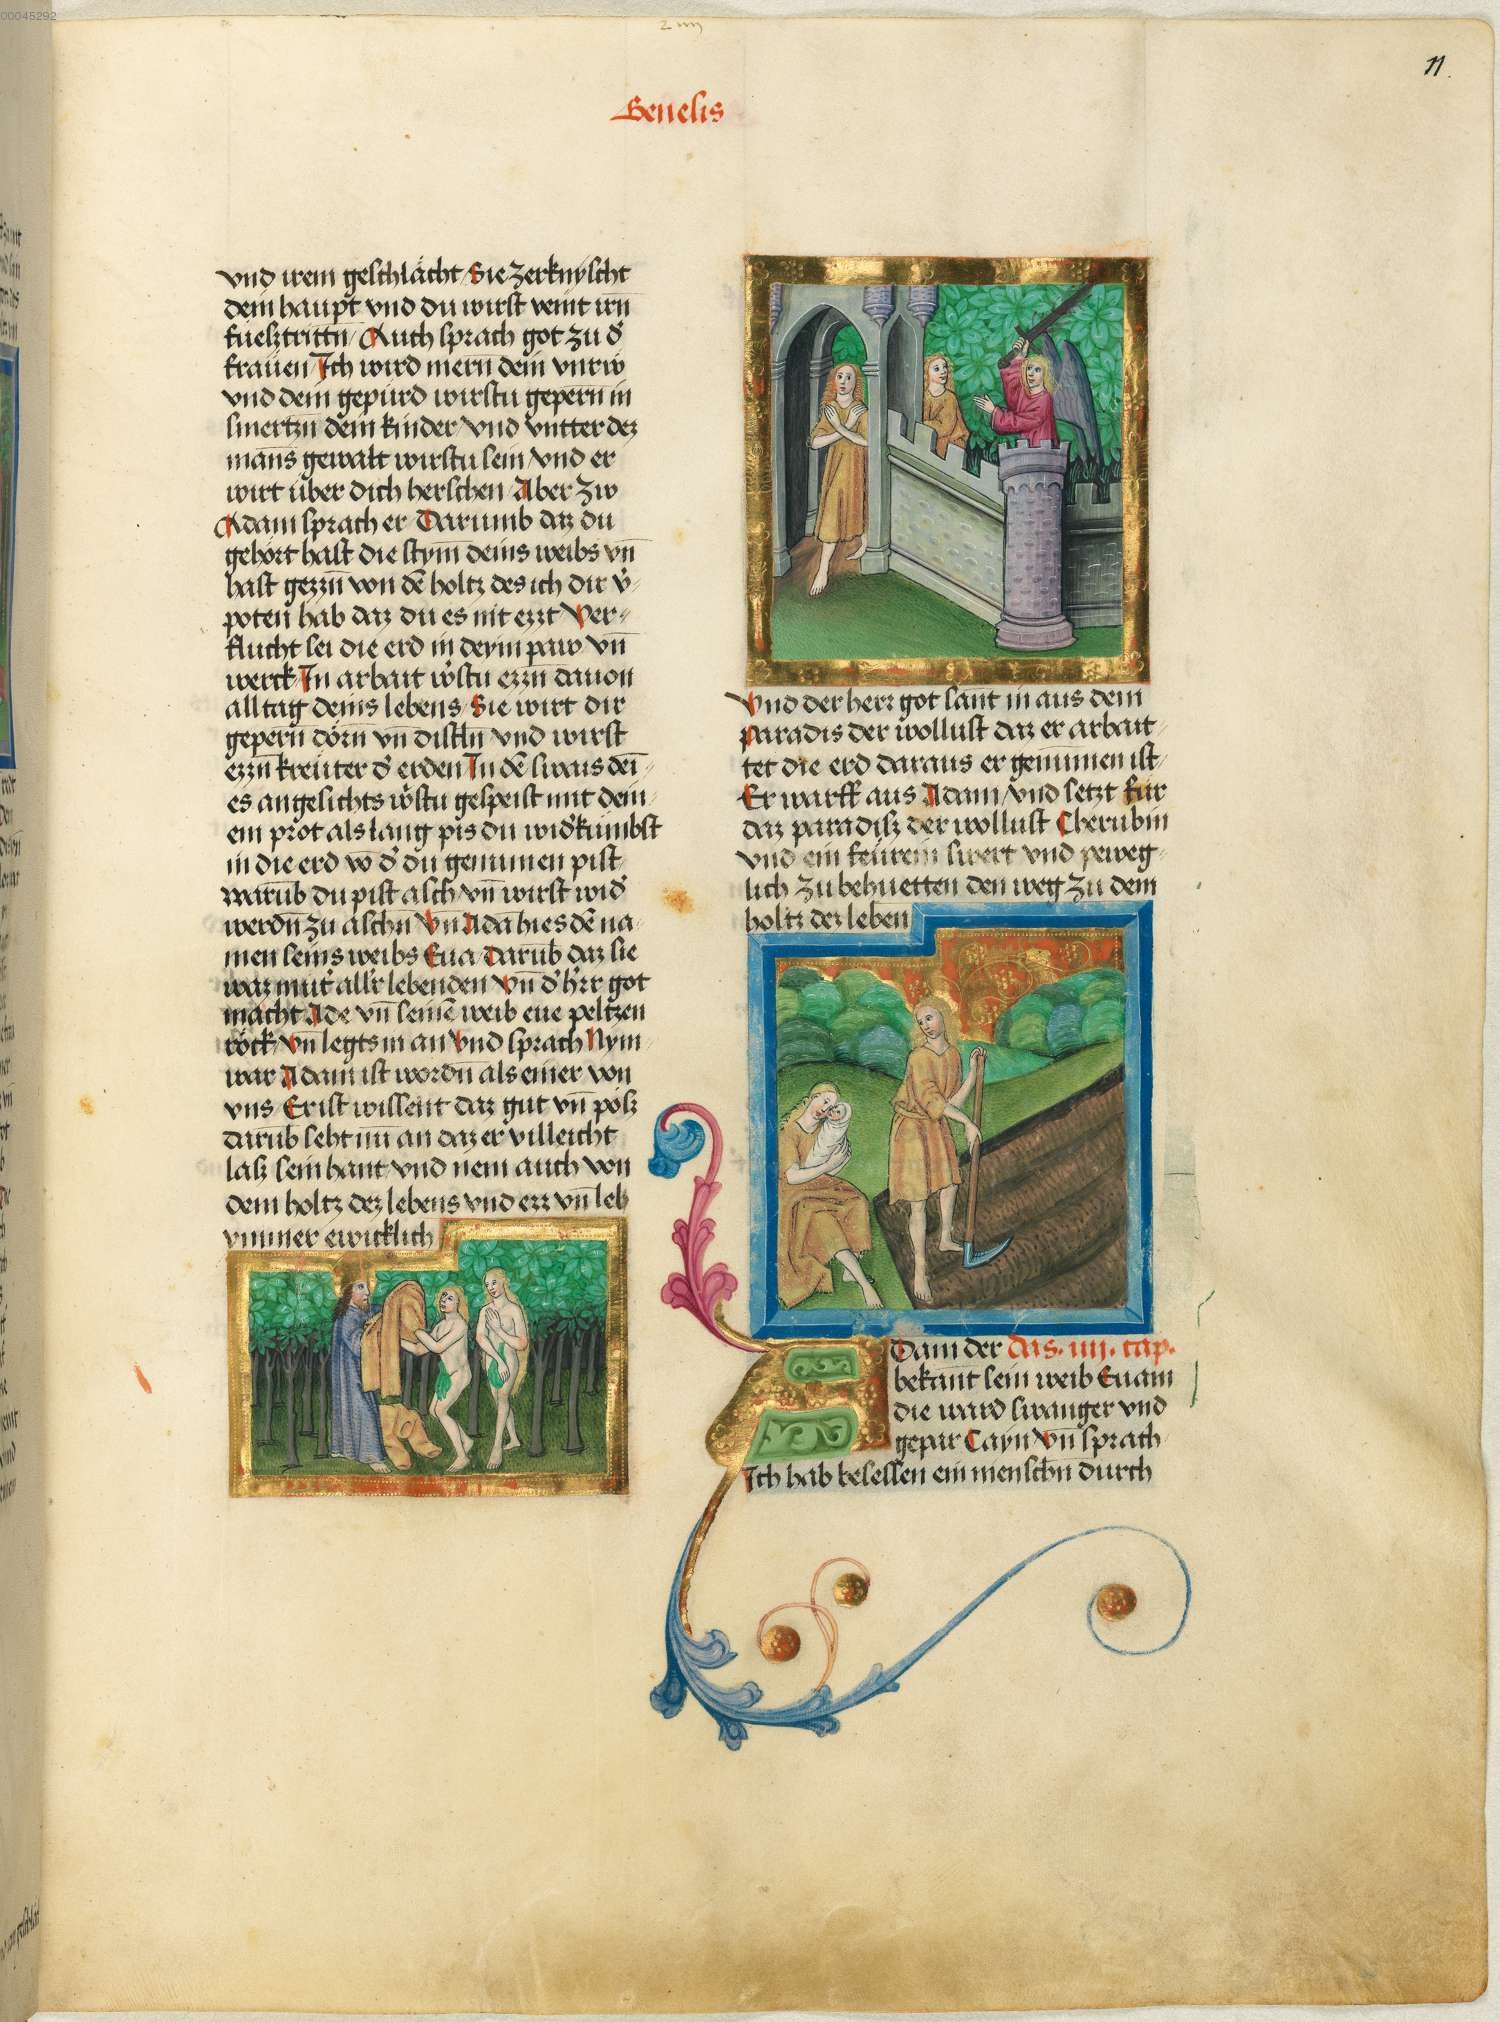 00045292
11
Genesis
vnd irem geschlächt Sie zerknyscht
dein haupt vnd du wirst veint irn̄
fueſztrittn̄ Auch sprach got zu d̓
fraüen Ich wird mern dein vnrw
vnd dein gepürd wirstu gepern̄ in
smertzn̄ dein kinder vnd vntter dez
mans gewalt wirstu sein vnd er
wirt über dich herschen Aber zw
Adam sprach er Darumb daz du
gehört hast die stym̄ deins weibs vn̄
hast gezzn̄ von dē holtz des ich dir v̓-
poten hab daz du es nit ezzt Ver-
flucht sei die erd in deym paw vn̄
werck In arbait w̓stu ezzn̄ dauon
all tag deins lebens Sie wirt dir
gepern̄ dörn̄ vn̄ distln̄ vnd wirst
ezzn̄ kreüter d̓ erden In dē swais dei-
es angesichts w̓stu gespeist mit deim
em prot als lang pis du wid̓kumbst
in die erd vō d̓ du genumen pist
warūb du pist asch vn̄ wirst wid̓
werdn̄ zu aschn̄ Vn̄ Adā hies dē na-
men seins weibs Eua darūb daz sie
waz mut̓ all̓r lebenden Vn̄ d̓ h̓rr got
macht Ade vn̄ seinē weib eue peltzen
röck vn̄ legts in an Vnd sprach Nym
war Adam ist wordn̄ als einer von
vns Er ist wissent daz gut vn̄ pösz
darūb seht nu an daz er villeicht
lasz sein hant vnd nem auch von
dem holtz dez lebens vnd ezz vn̄ leb
ymmer ewicklich
Vnd der herr got sant in aus dem
paradis der wollust daz er arbait-
tet die erd daraus er genummen ist
Er warff aus Adam vnd setzt für
daz paradisz der wollust Cherubin
vnd ein feürein swert vnd peweg-
lich zu behuetten den weg zu dem
holtz dez leben
Adam der das. iiij. cap.
bekant sein weib Euam
die ward swanger vnd
gepar Cayn Vn̄ sprach
Ich hab besessen ein menschn̄ durch